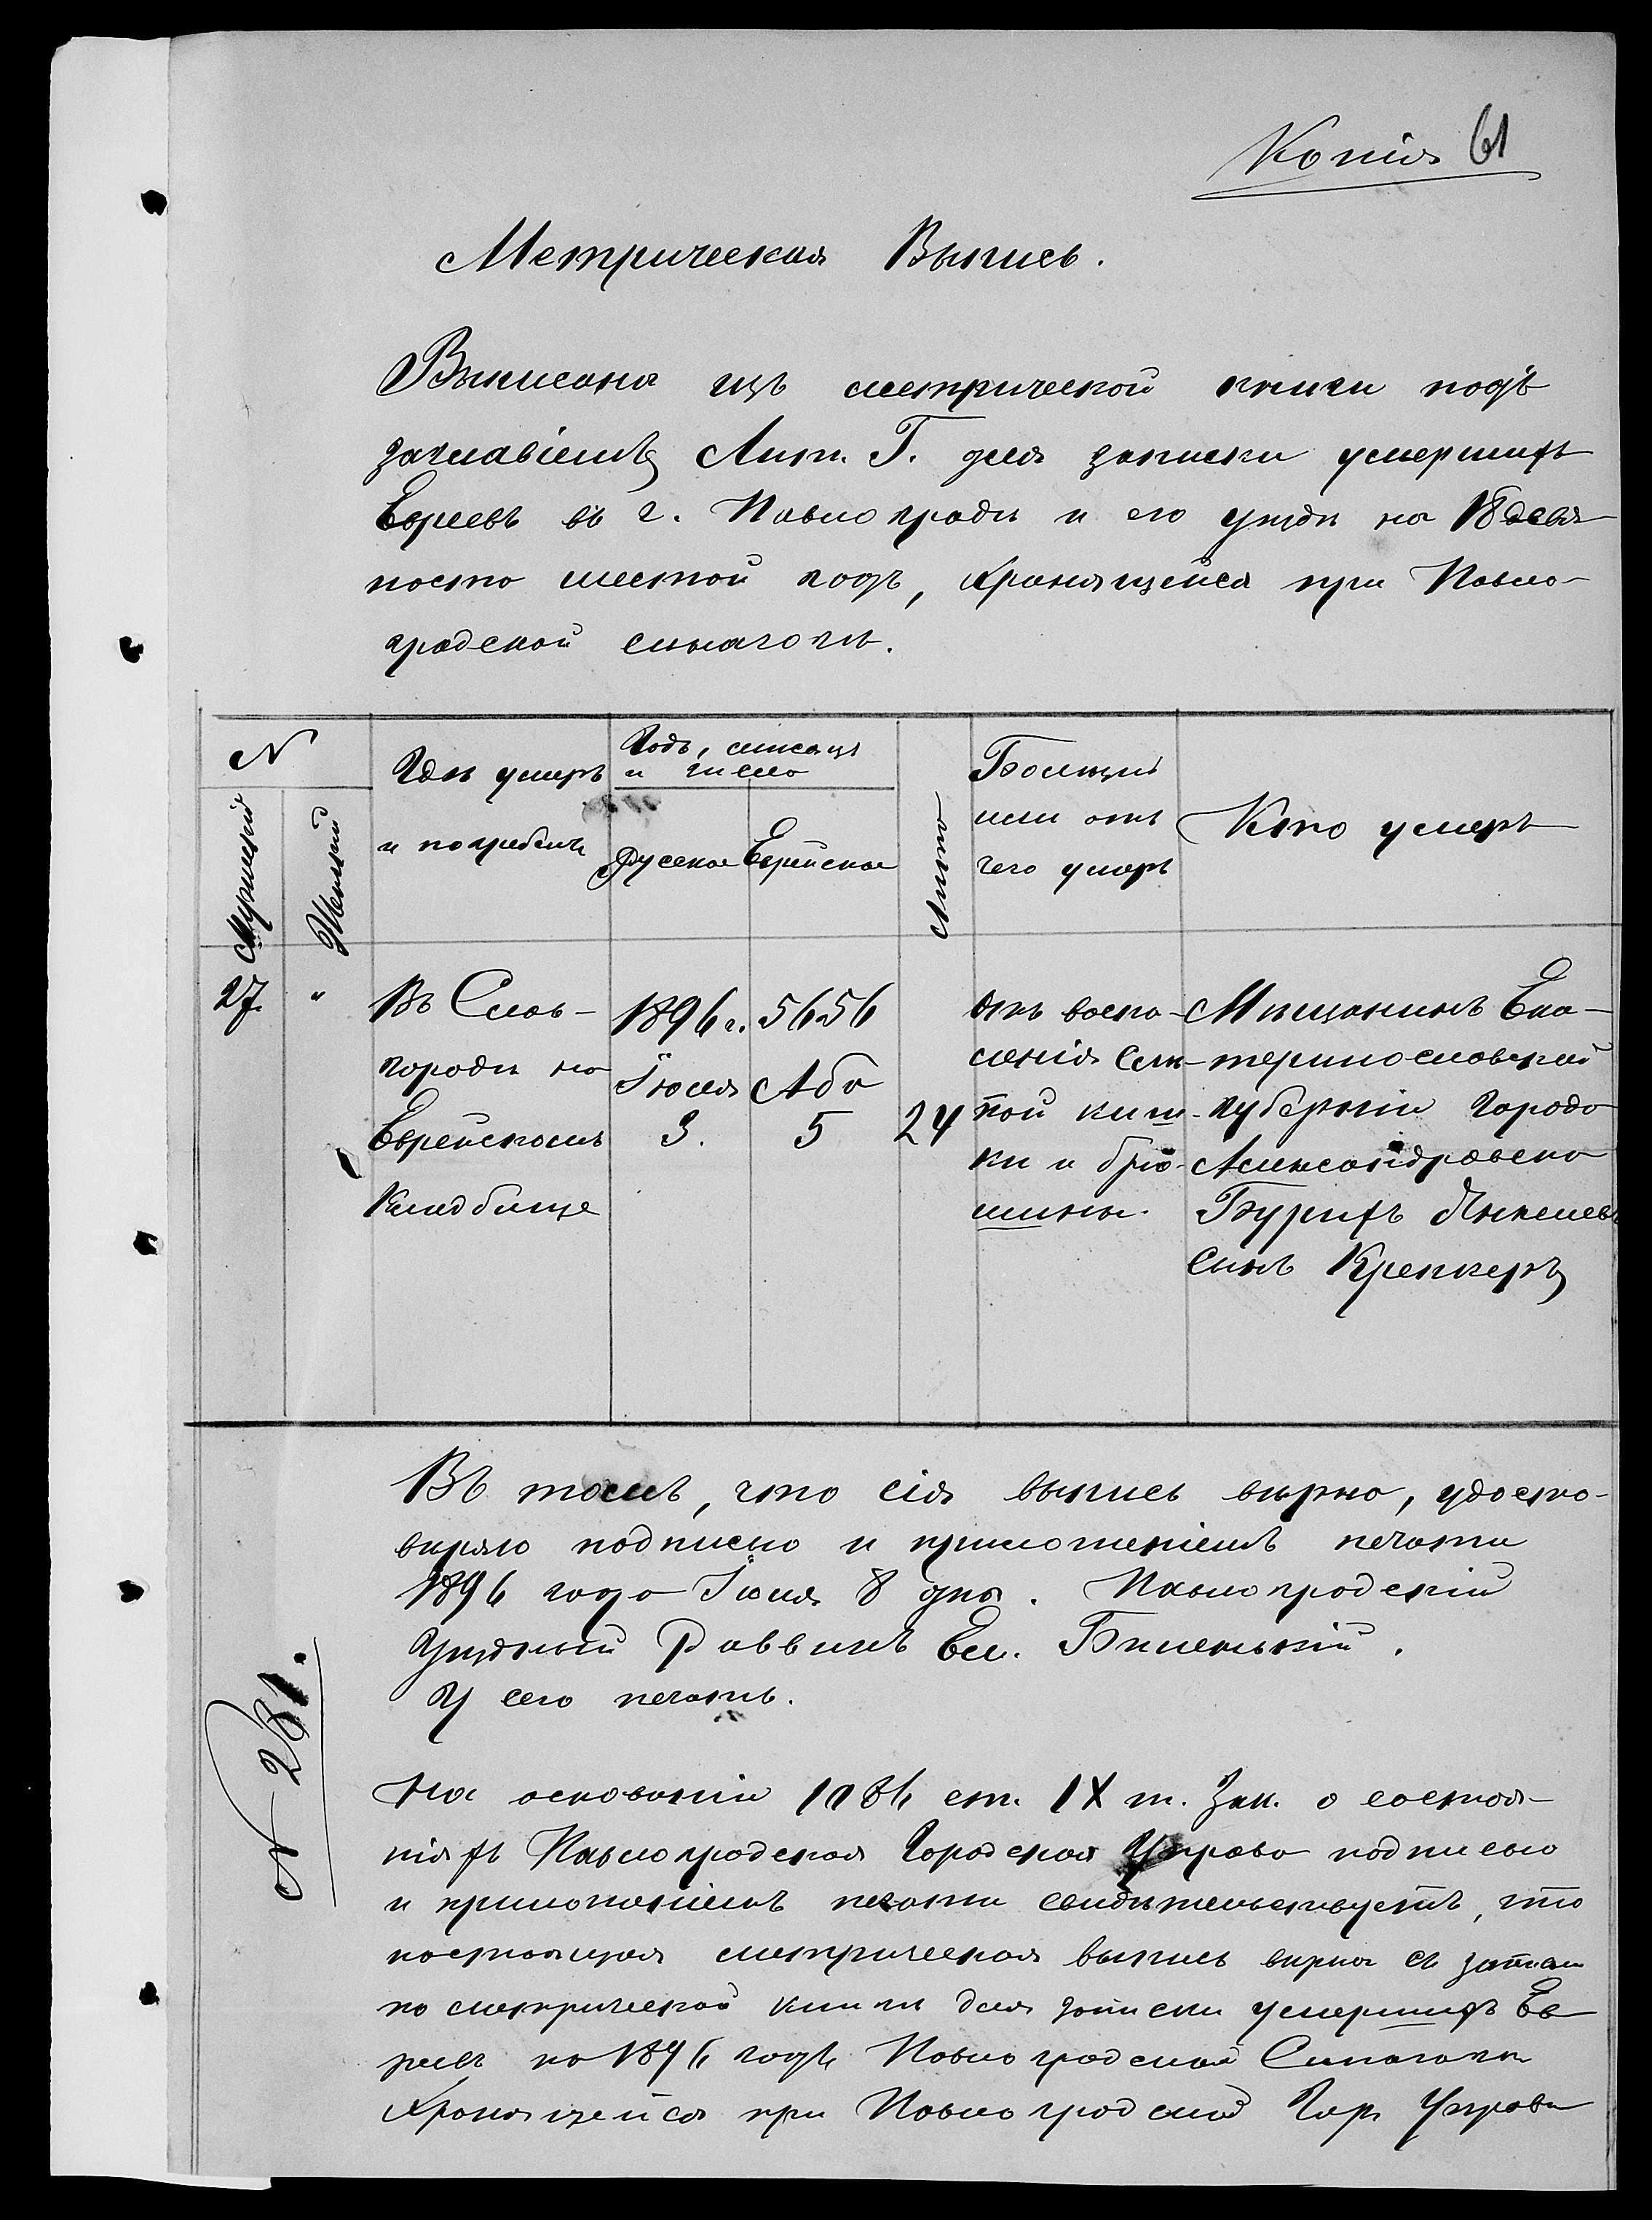 Копія 61
Метрическая Выпись.
Выписана изъ метрической книги подъ
заглавіемъ Лит. Г. для записки умершихъ
Евреевъ въ г. Павлоградѣ и его уѣздѣ на 18 девя-
носто шестой годъ, хранящейся при Павло-
градской синагогѣ.
N
Мужескій
Женскій
Гдѣ умеръ
и погребенъ
Годъ, мѣсяцъ
и число
Русское Еврейское
Лѣта
Болѣзнь
или отъ
чего умеръ
Кто умеръ
27. "
Въ Слав-
городѣ на
Еврейскомъ
Кладбище
1896 г.
Іюля
3.
5656
Аба
5
24
отъ воспа-
ленія слѣ-
пой киш-
ки и брю-
шины.
Мѣщанинъ Ека-
теринославской
губерніи города
Александровска
Бурихъ
Сынъ Креккеръ
Въ томъ, что сія выпись вѣрна, удосто-
вѣряю подписью и приложеніемъ печати
1896 года Іюля 8 дня. Павлоградскій
Уѣздный Раввинъ Ем.
У сего печать.
N 261.
На основаніи 1086 ст. IX т. Зак. о состоя-
ніяхъ Павлоградская Городская Управа подписью
и приложеніемъ печати свидѣтельствуетъ, что
настоящая метрическая выпись вѣрна съ записью
по метрической книги для записки умершихъ Ев
реевъ на 1896 годъ Павлоградской Синагоги
хранящейся при Павлоградской Гор. Управѣ